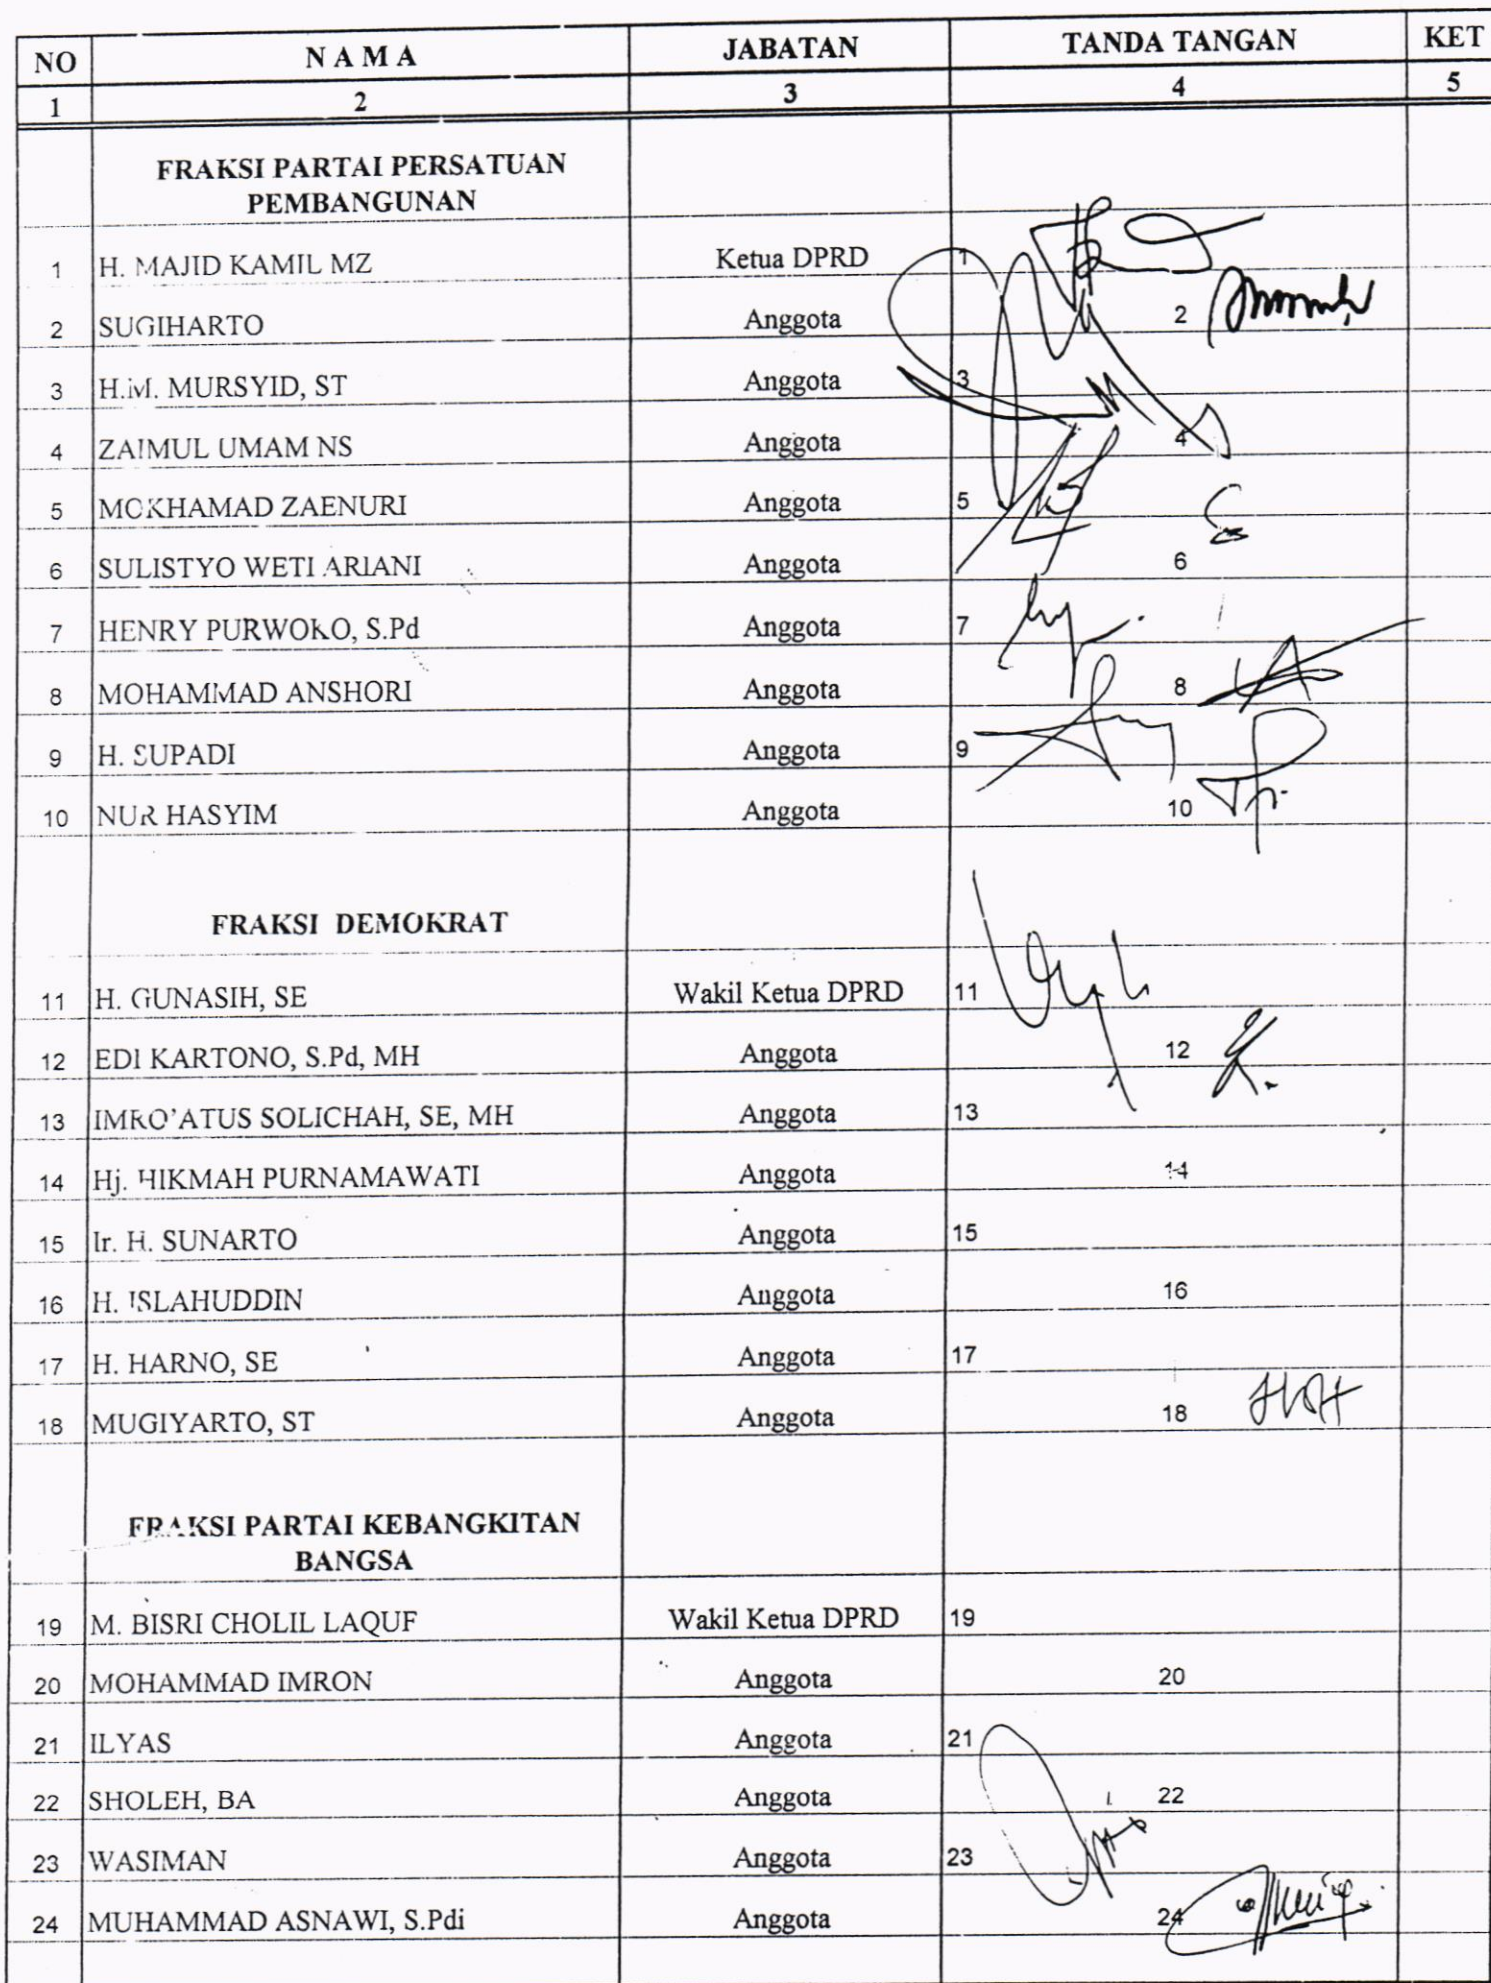 NO N A M A JABATAN TANDA TANGAN KET
1 2 3 4 5
FRAKSI PARTAI PERSATUAN
PEMBANGUNAN
1 H. MAJID KAMIL MZ Ketua DPRD 1
2 SUGIHARTO Anggota 2
3 H.M. MURSYID, ST Anggota 3
4 ZAIMUL UMAM NS Anggota 4
5 MOKHAMAD ZAENURI Anggota 5
6 SULISTYO WETI ARIANI Anggota 6
7 HENRY PURWOKO, S.Pd Anggota 7
8 MOHAMMAD ANSHORI Anggota 8
9 H. SUPADI Anggota 9
10 NUR HASYIM Anggota 10
FRAKSI DEMOKRAT
11 H. GUNASIH, SE Wakil Ketua DPRD 11
12 EDI KARTONO, S.Pd, MH Anggota 12
13 IMRO'ATUS SOLICHAH, SE, MH Anggota 13
14 Hj. HIKMAH PURNAMAWATI Anggota 14
15 Ir. H. SUNARTO Anggota 15
16 H. ISLAHUDDIN Anggota 16
17 H. HARNO, SE Anggota 17
18 MUGIYARTO, ST Anggota 18
FRAKSI PARTAI KEBANGKITAN
BANGSA
19 M. BISRI CHOLIL LAQUF Wakil Ketua DPRD 19
20 MOHAMMAD IMRON Anggota 20
21 ILYAS Anggota 21
22 SHOLEH, BA Anggota 22
23 WASIMAN Anggota 23
24 MUHAMMAD ASNAWI, S.Pdi Anggota 24